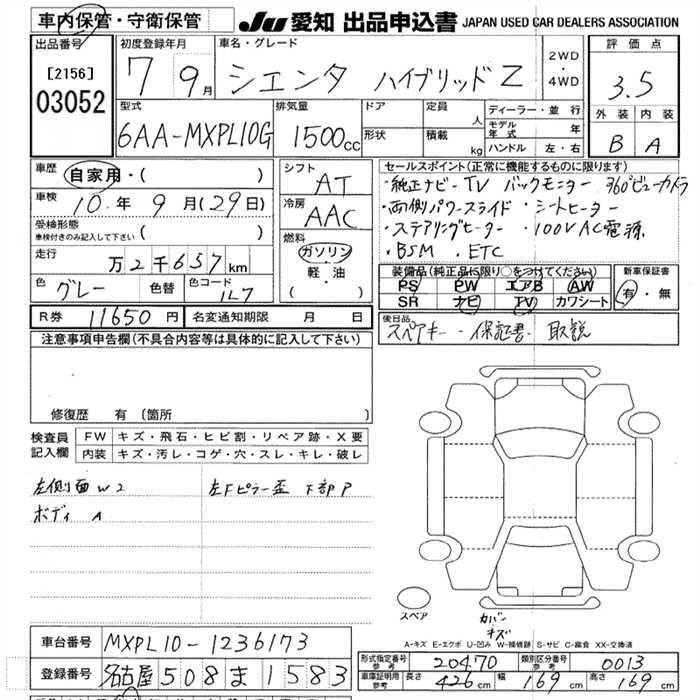 車内保管・守衛保管
JU 愛知 出品申込書 JAPAN USED CAR DEALERS ASSOCIATION
出品番号
[2156]
03052
初度登録年月
7 9月
車名・グレード
シエンタ ハイブリッドZ
2WD
・
4WD
評価点
3.5
外装 内装
B A
型式
6AA-MXPL10G
排気量
1500cc
ドア
形状
定員
人
積載
kg
ディーラー・並行
モデル年式 年
ハンドル 左・右
車歴
自家用・( )
車検
10年9月(29日)
受検形態
車検付きのみ記入して下さい( )
走行
万2千657km
色
グレー
色替
色コード
1L7
シフト
AT
冷房
AAC
燃料
ガソリン
・
軽・油
( )
セールスポイント(正常に機能するものに限ります)
・純正ナビ-TV バックモニター 360°ビューカメラ
・両側パワースライド ・シートヒーター
・ステアリングヒーター ・100V AC電源
・BSM ・ETC
装備品(純正品に限り○をつけてください)
PS PW エアB AW
SR ナビ TV カワシート
新車保証書
有・無
R券 11650円
名変通知期限 月 日
後日品
スペアキー・保証書 取説
注意事項申告欄(不具合内容等は具体的に記入して下さい)
修復歴 有(箇所 )
検査員
記入欄
FW キズ・飛石・ヒビ割・リペア跡・X要
内装 キズ・汚レ・コゲ・穴・スレ・キレ・破レ
左側面W2 左Fピラー歪 下部P
ボディ A
スペア
カバー
キズ
A-キズ E-エクボ U-凹み W-補修跡 S-サビ C-腐食 XX-交換済
車台番号 MXPL10-1236173
登録番号 名古屋508ま1583
形式指定番号
参考
20470
類別区分番号
参考
0013
車庫証明用
参考
長さ 426cm 幅 169cm 高さ 169cm